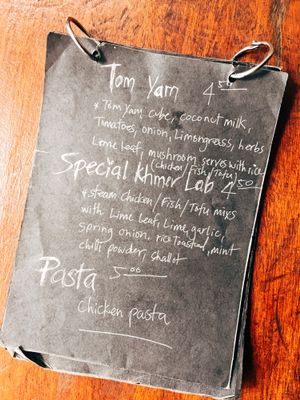 Tom Yam 4 50
* Tom Yam cube, coconut milk,
Tomatoes, onion, Limongrass, herbs
Lome leaf, mushroom, serves with rice
(chicken/fish/Tofu)
Special Khmer Lab 4 50
* steam chicken/Fish/Tofu mixs
with Lime Leaf, Lime, garlic,
Spring onion, rice toasted, mint
chilli powder, shallot
Pasta 5.00
Chicken pasta